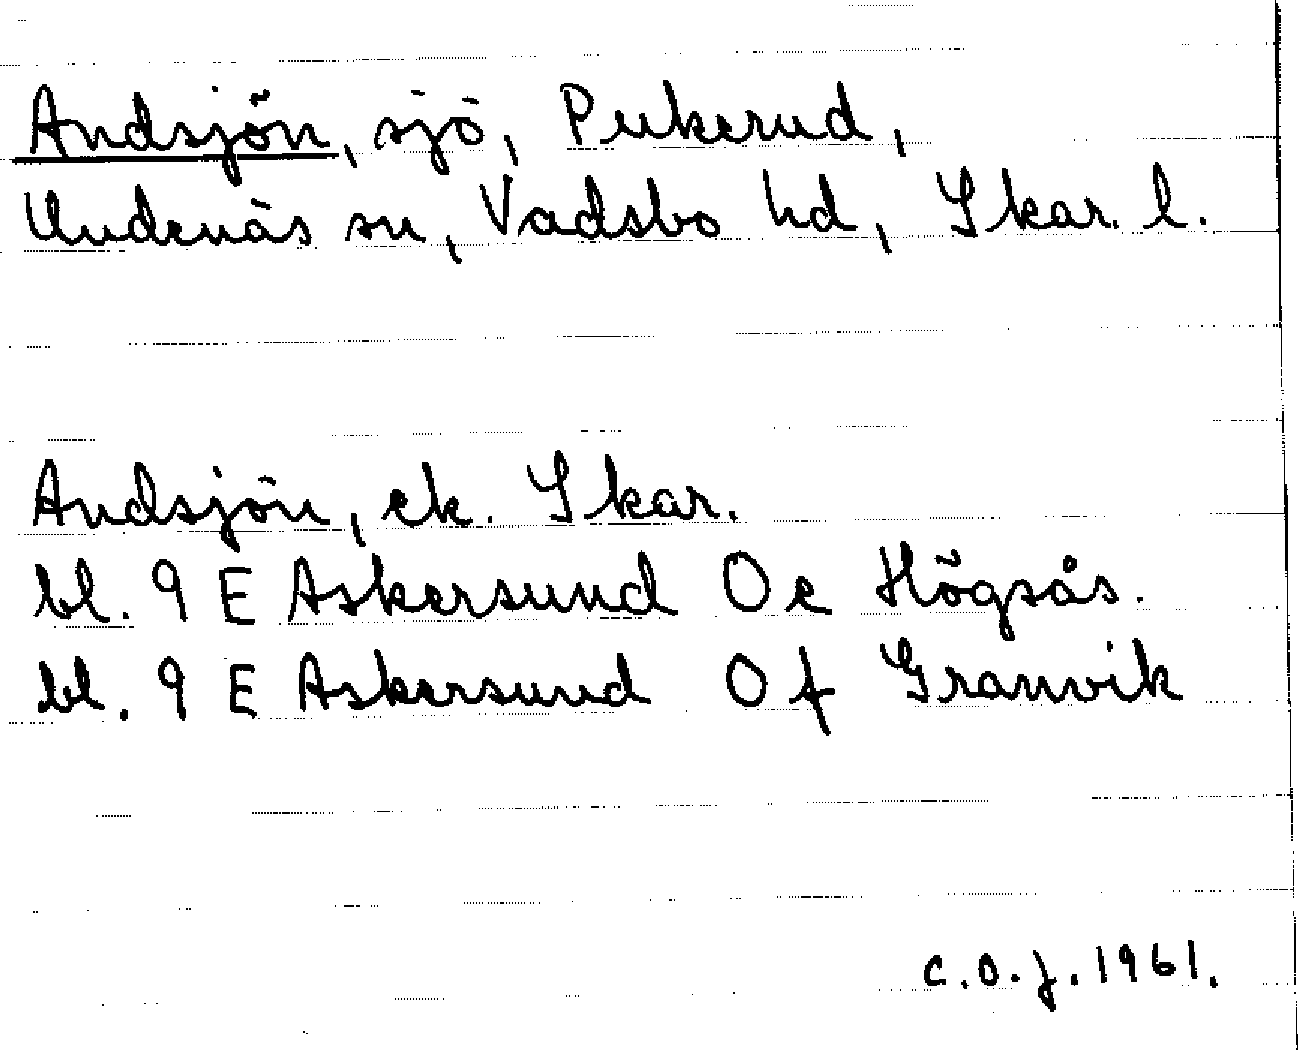 Andsjön, sjö, Pukerud,
Undenäs sn, Vadsbo hd, Skar. l.
Andsjön, ek. Skar.
bl. 9 E Askersund Oe Högsås.
bl. 9 E Askersund Of Granvik
C.O.J. 1961.